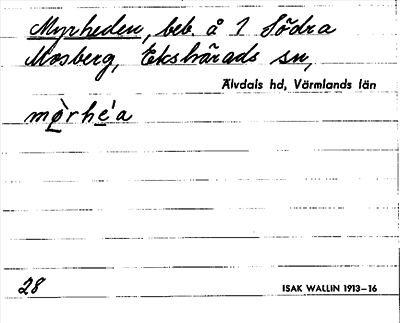 Myrheden, beb. å 1 Södra
Mosberg, Ekshärads sn,
Älvdals hd, Värmlands län
mo̱̍̀rhe̱̍a
28
ISAK WALLIN 1913–16